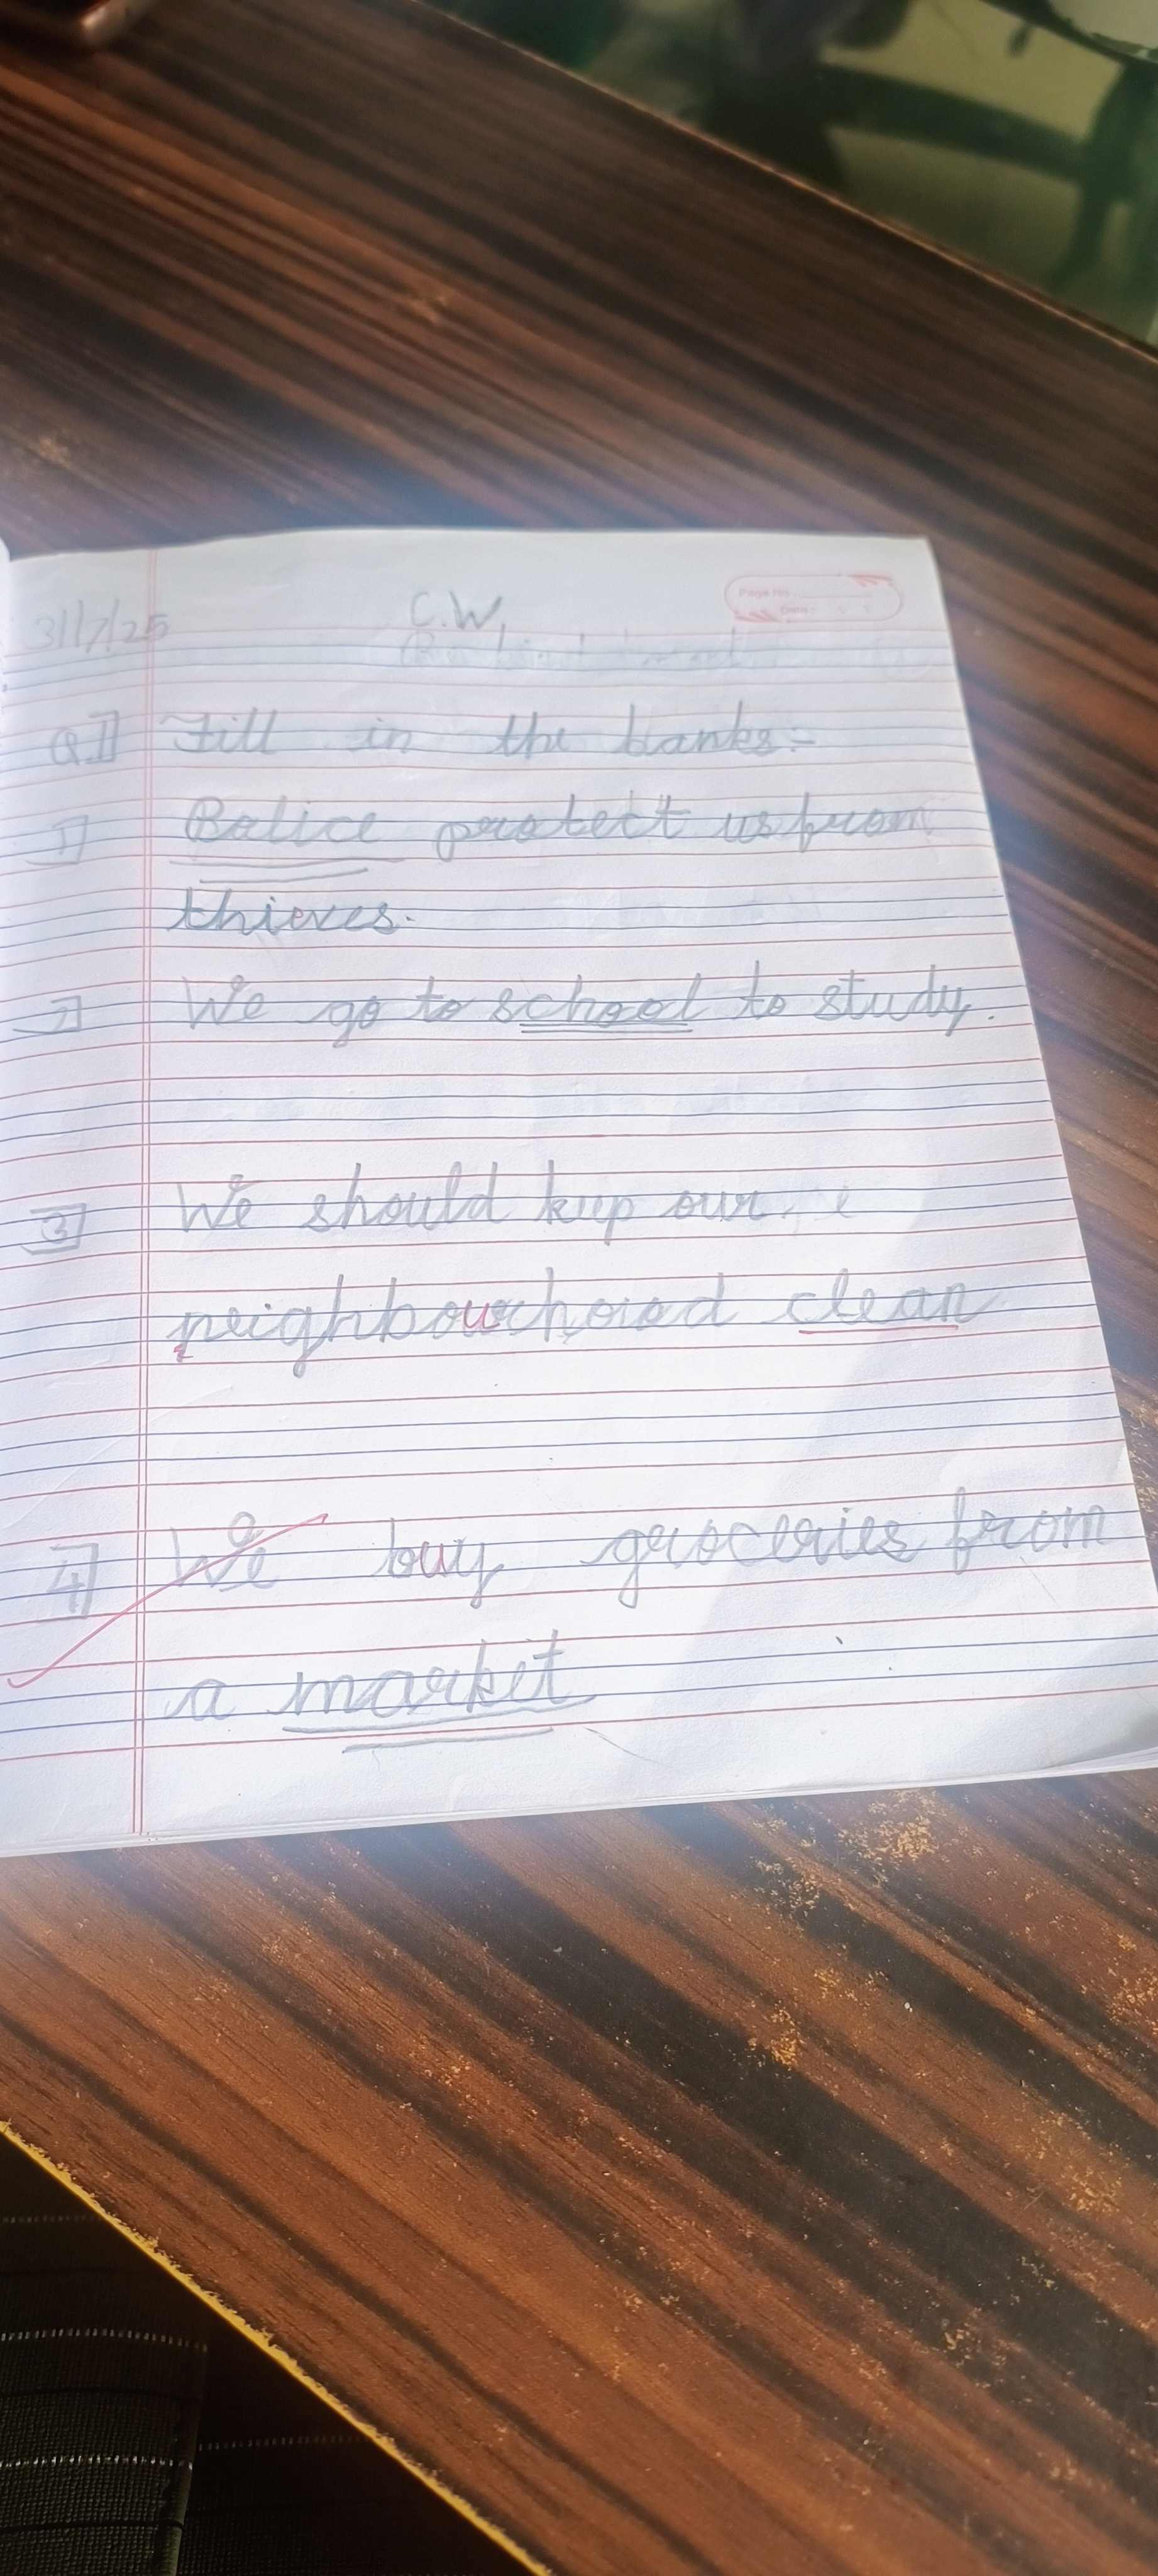 31/7/25
C.W.
Page No.
Date:
Q.1] Fill in the banks:-
1] Police protect us from
thieves.
2] We go to school to study.
3] We should keep our
neighbourhood clean
4] We buy groceries from
a market